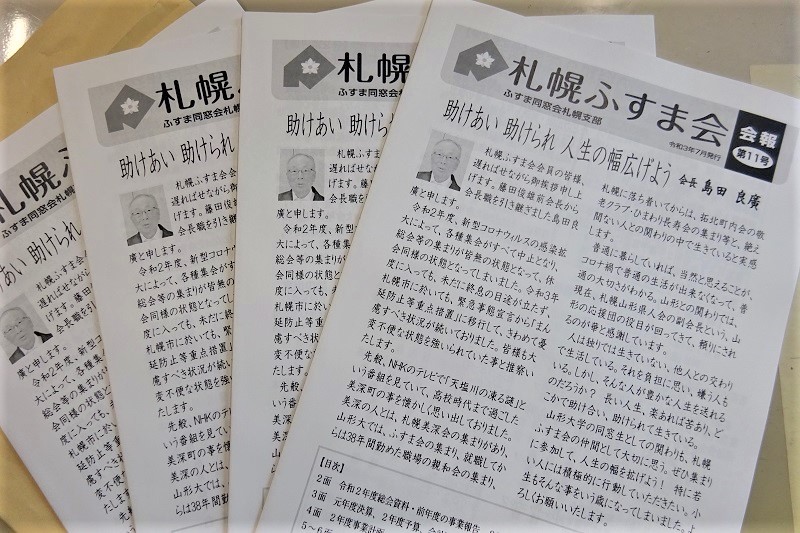 札幌ふすま会
会報
第11号
ふすま同窓会札幌支部
令和3年7月発行
助けあい 助けられ 人生の幅広げよう
会長 島田 良廣
札幌ふすま会会員の皆様、
遅ればせながら御挨拶申し上
げます。藤田俊雄前会長から
会長職を引き継ぎました島田良
廣と申します。
令和2年度、新型コロナウィルスの感染拡
大によって、各種集会がすべて中止となり、
総会等の集まりが皆無の状態となって、休
会同様の状態となってしまいました。令和3年
度に入っても、未だに終息の目途が立たず、
札幌市に於いても、緊急事態宣言から「まん
延防止等重点措置」に移行して、きわめて憂
慮すべき状況が続いております。皆様も大
変不便な状態を強いられていた事と推察い
たします。
先般、NHKのテレビで「天塩川の凍る謎」と
いう番組を見ていて、高校時代まで過ごした
美深町の事を懐かしく思い出しておりました。
美深の人とは、札幌美深会の集まりがあり、
山形大では、ふすま会の集まり、就職してか
らは38年間勤めた職場の親和会の集まり、
札幌に落ち着いてからは、拓北町内会の敬
老クラブ・ひまわり長寿会の集まり等と、絶え
間ない人との関わりの中で生きていると実感
普通に暮らしていれば、当然と思えることが、
コロナ禍で普通の生活が出来なくなって、普
通の大切さがわかる。山形との関わりでは、
現在、札幌山形県人会の副会長という、山
形の応援団の役目が回ってきて、頼りにされ
るのが夢と感謝しています。
人は独りでは生きていない。他人との交わり
で生活している。それを負担に思い、嫌う人も
いる。しかし、そんな人が豊かな人生を送れる
のだろうか？ 長い人生、楽あれば苦あり、ど
こかで助け合い、助けられて生きている。
山形大学の同窓生としての関わりも、札幌
ふすま会の仲間として大切に思う。ぜひ集まり
に参加して、人生の幅を拡げよう！ 特に若
い人には積極的に行動していただきたい。小
生もそんな事をいう歳になってしまいました。よ
ろしくお願いいたします。
【目次】
2面 令和2年度総会資料・前年度の事業報告
3面 元年度決算、2年度予算、
4面 2年度事業計画
5～6面